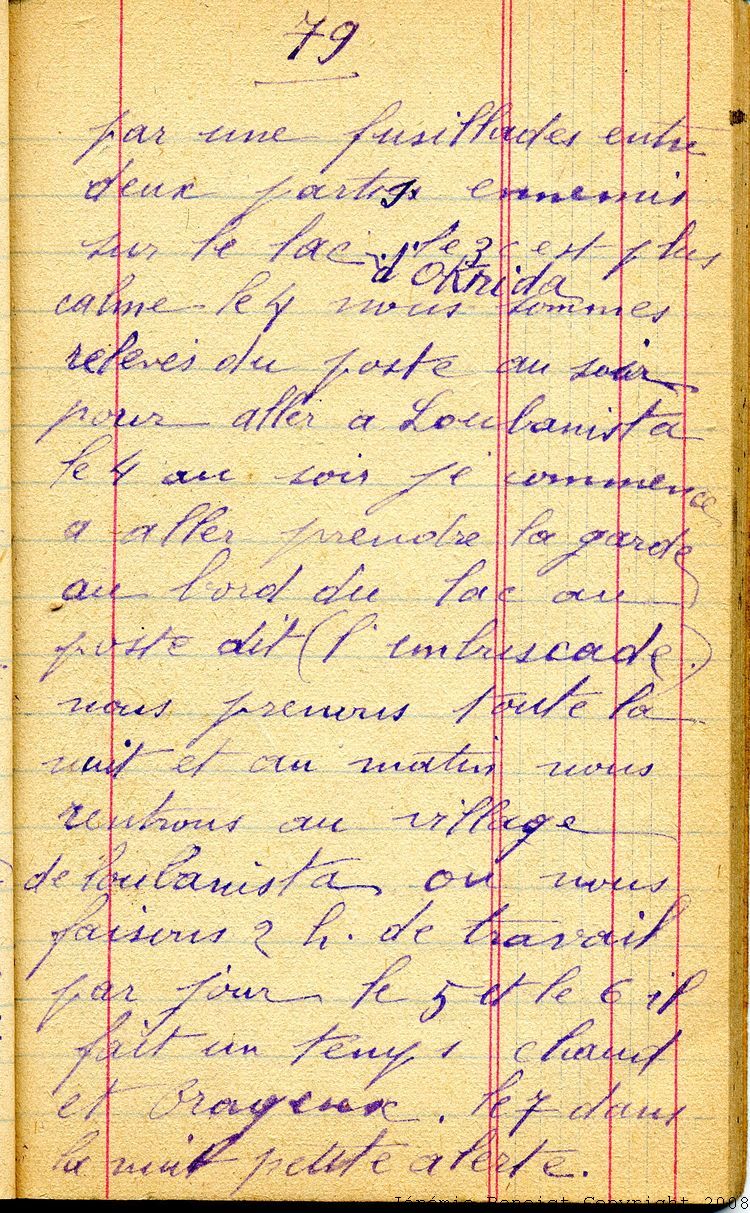 79
par une fusillades entre
deux partis ennemis
sur le lac d'Okrida le 3 c est plus
calme le 4 nous sommes
relevés du poste au soir
pour aller a Loubanista
le 4 au soir je commence
a aller prendre la garde
au bord du lac au
poste dit (l' embuscade.)
nous prenons toute la
nuit et au matin nous
rentrons au village
de Loubanista ou nous
faisons 2 h. de travail
par jour le 5 et le 6 il
fait un temps chaud
et Orageux. le 7 dans
la nuit petite alerte.
Jérémie Benoist Copyright 2008